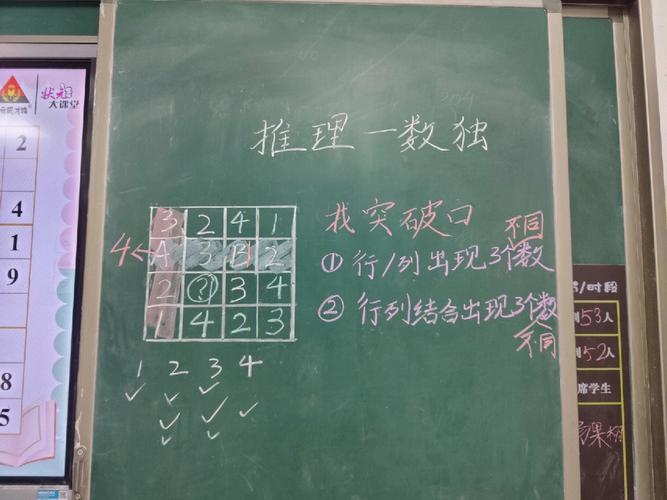 状元
大课堂
2
4
1
9
8
5
推理一数独
3 2 4 1
4← A 3 B 2
2 ? 3 4
1 4 2 3
1 2 3 4
找突破口
不同
① 行/列出现3个数
② 行列结合出现3个数
不同
/时段
53人
52人
席学生